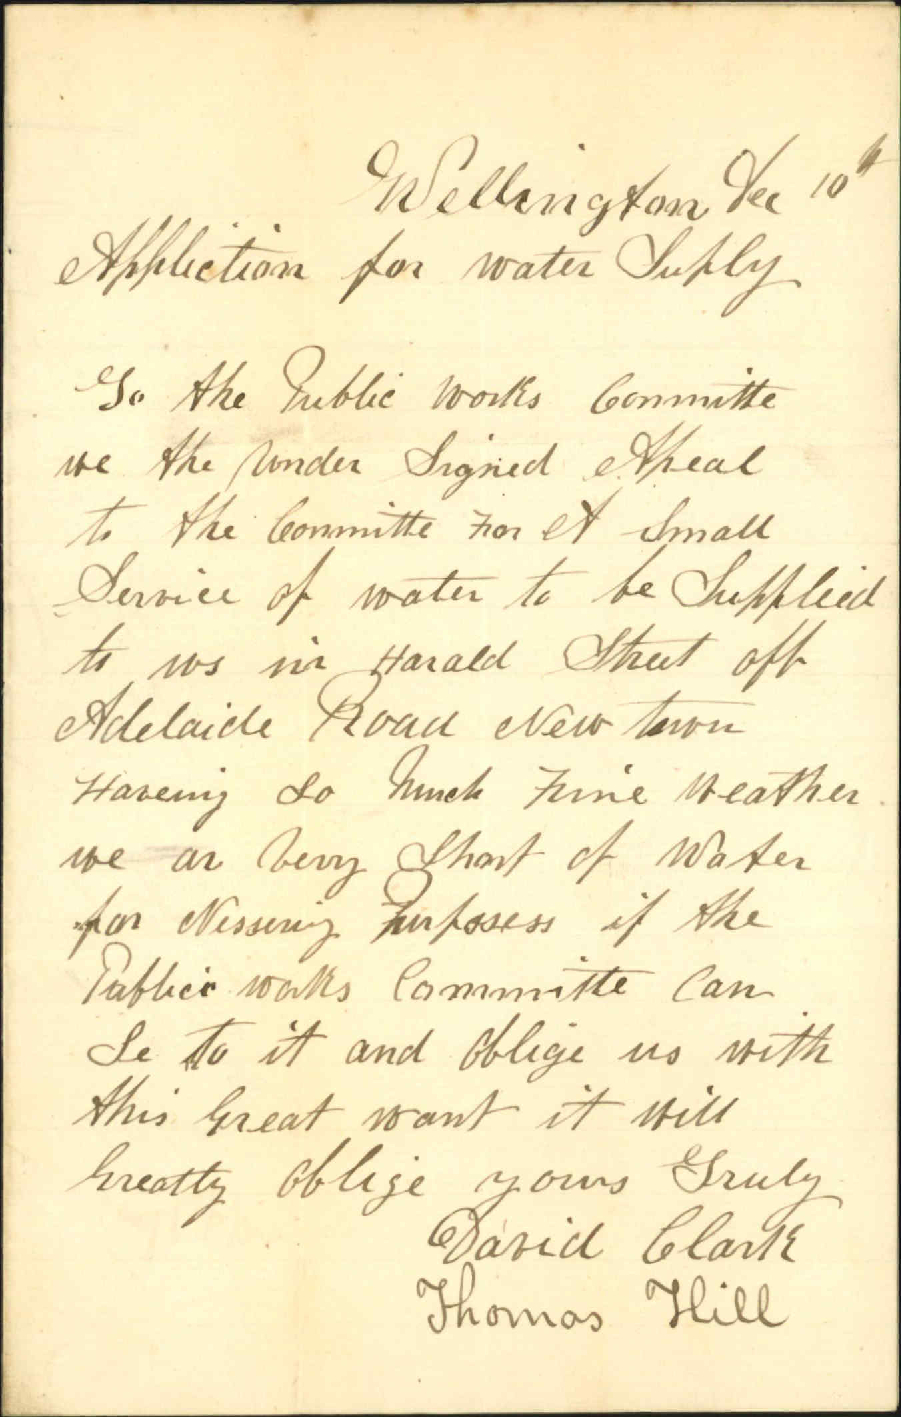 Wellington Dec 10th
Appliction for water Suply
To the Public works Committe
we the under Signed Apeal
to the Committe For A Small
Service of water to be Supplied
to us in Harald Street off
Adelaide Road New town
Haveing So Much Fine Weather
we ar very Short of Water
for Nessery Purposess if the
Public works Committe Can
Se to it and Oblige us with
this Great want it will
Greatly Oblige yours Truly
David Clark
Thomas Hill